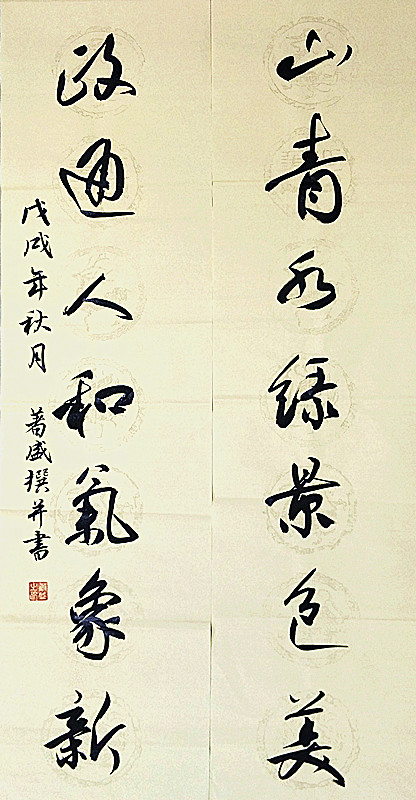 山青水綠景色美
政通人和氣象新
戊戌年秋月 著盛撰并書